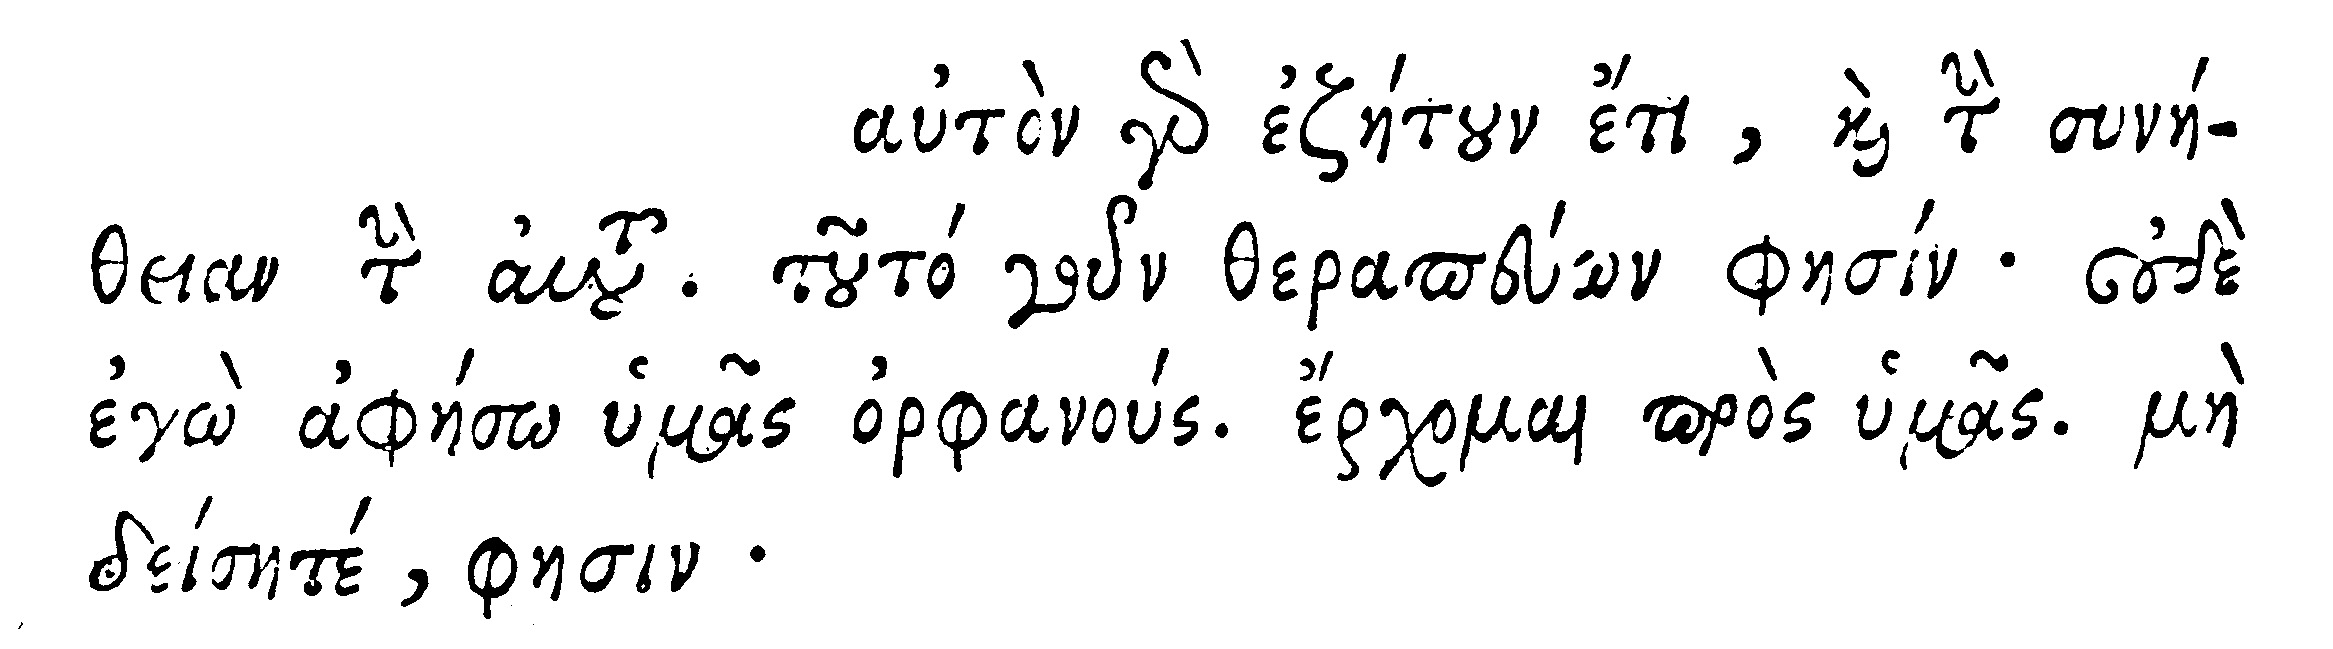 αὐτὸν γὰρ ἐζήτουν ἔτι, καὶ τὴν συνή-
θειαν τὴν αὐτοῦ. τοῦτό γοῦν θεραπεύων φησίν· οὐδὲ
ἐγὼ ἀφήσω ὑμᾶς ὀρφανούς. ἔρχομαι πρὸς ὑμᾶς. μὴ
δείσητέ, φησιν·